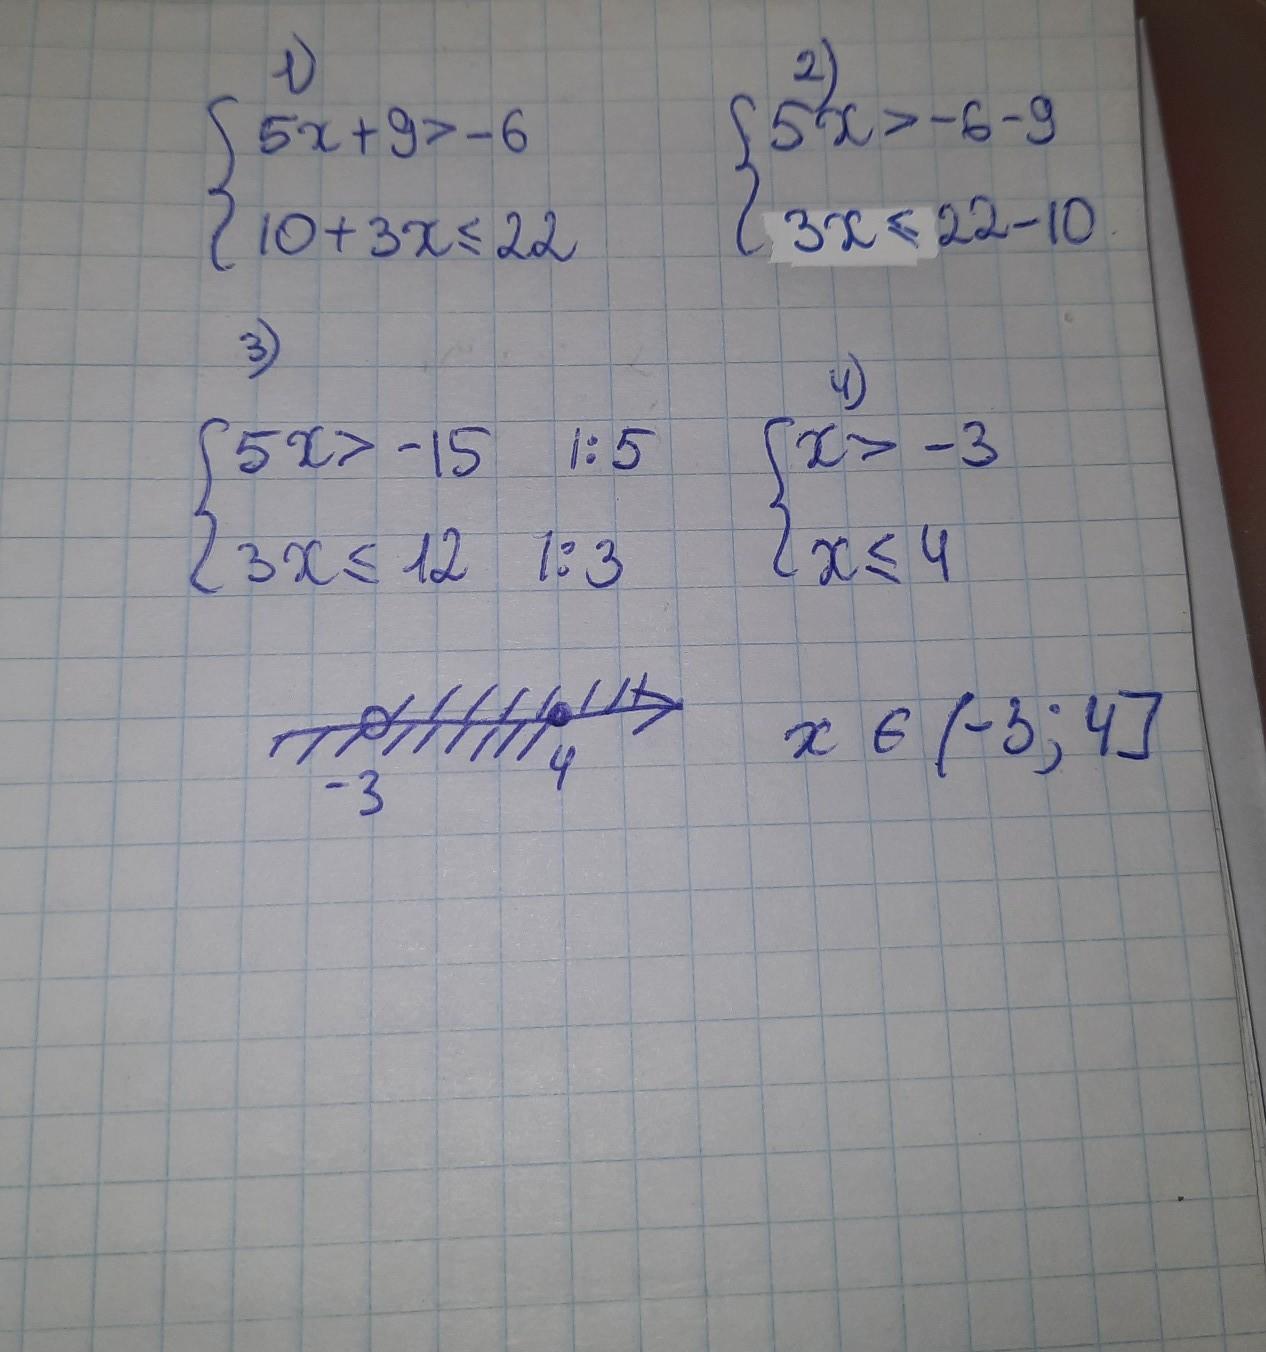 1)
5x+9>-6
10+3x≤22
2)
5x>-6-9
3x≤22-10
3)
5x>-15 |:5
3x≤12 |:3
4)
x>-3
x≤4
-3 4
x∈(-3;4]